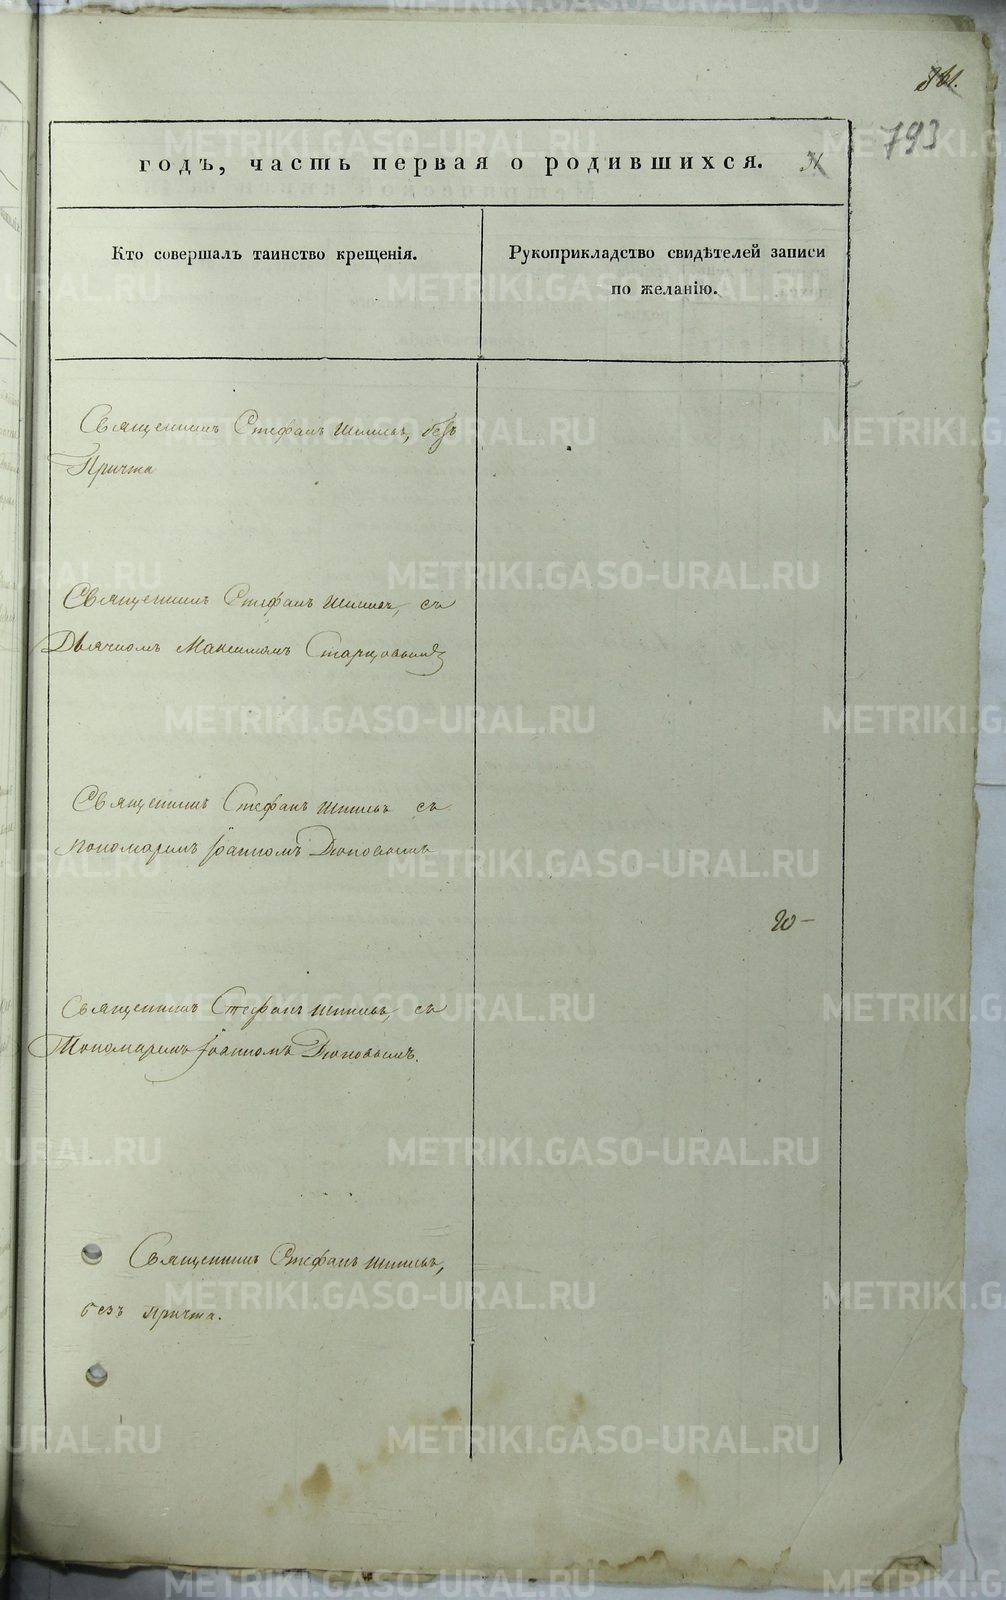 793
годъ, часть первая о родившихся. 31
Кто совершалъ таинство крещенія.
Рукоприкладство свидѣтелей записи
по желанію.
Священникъ Стефанъ Шишевъ, безъ
Причта
Священникъ Стефанъ Шишевъ, съ
Дьячкомъ Максимомъ Старцовымъ
Священникъ Стефанъ Шишевъ съ
пономаремъ Іоанномъ Дюповымъ
20-
Священникъ Стефанъ Шишевъ, съ
Пономаремъ Іоанномъ Дюповымъ.
Священникъ Стефанъ Шишевъ,
безъ причта.
METRIKI.GASO-URAL.RU